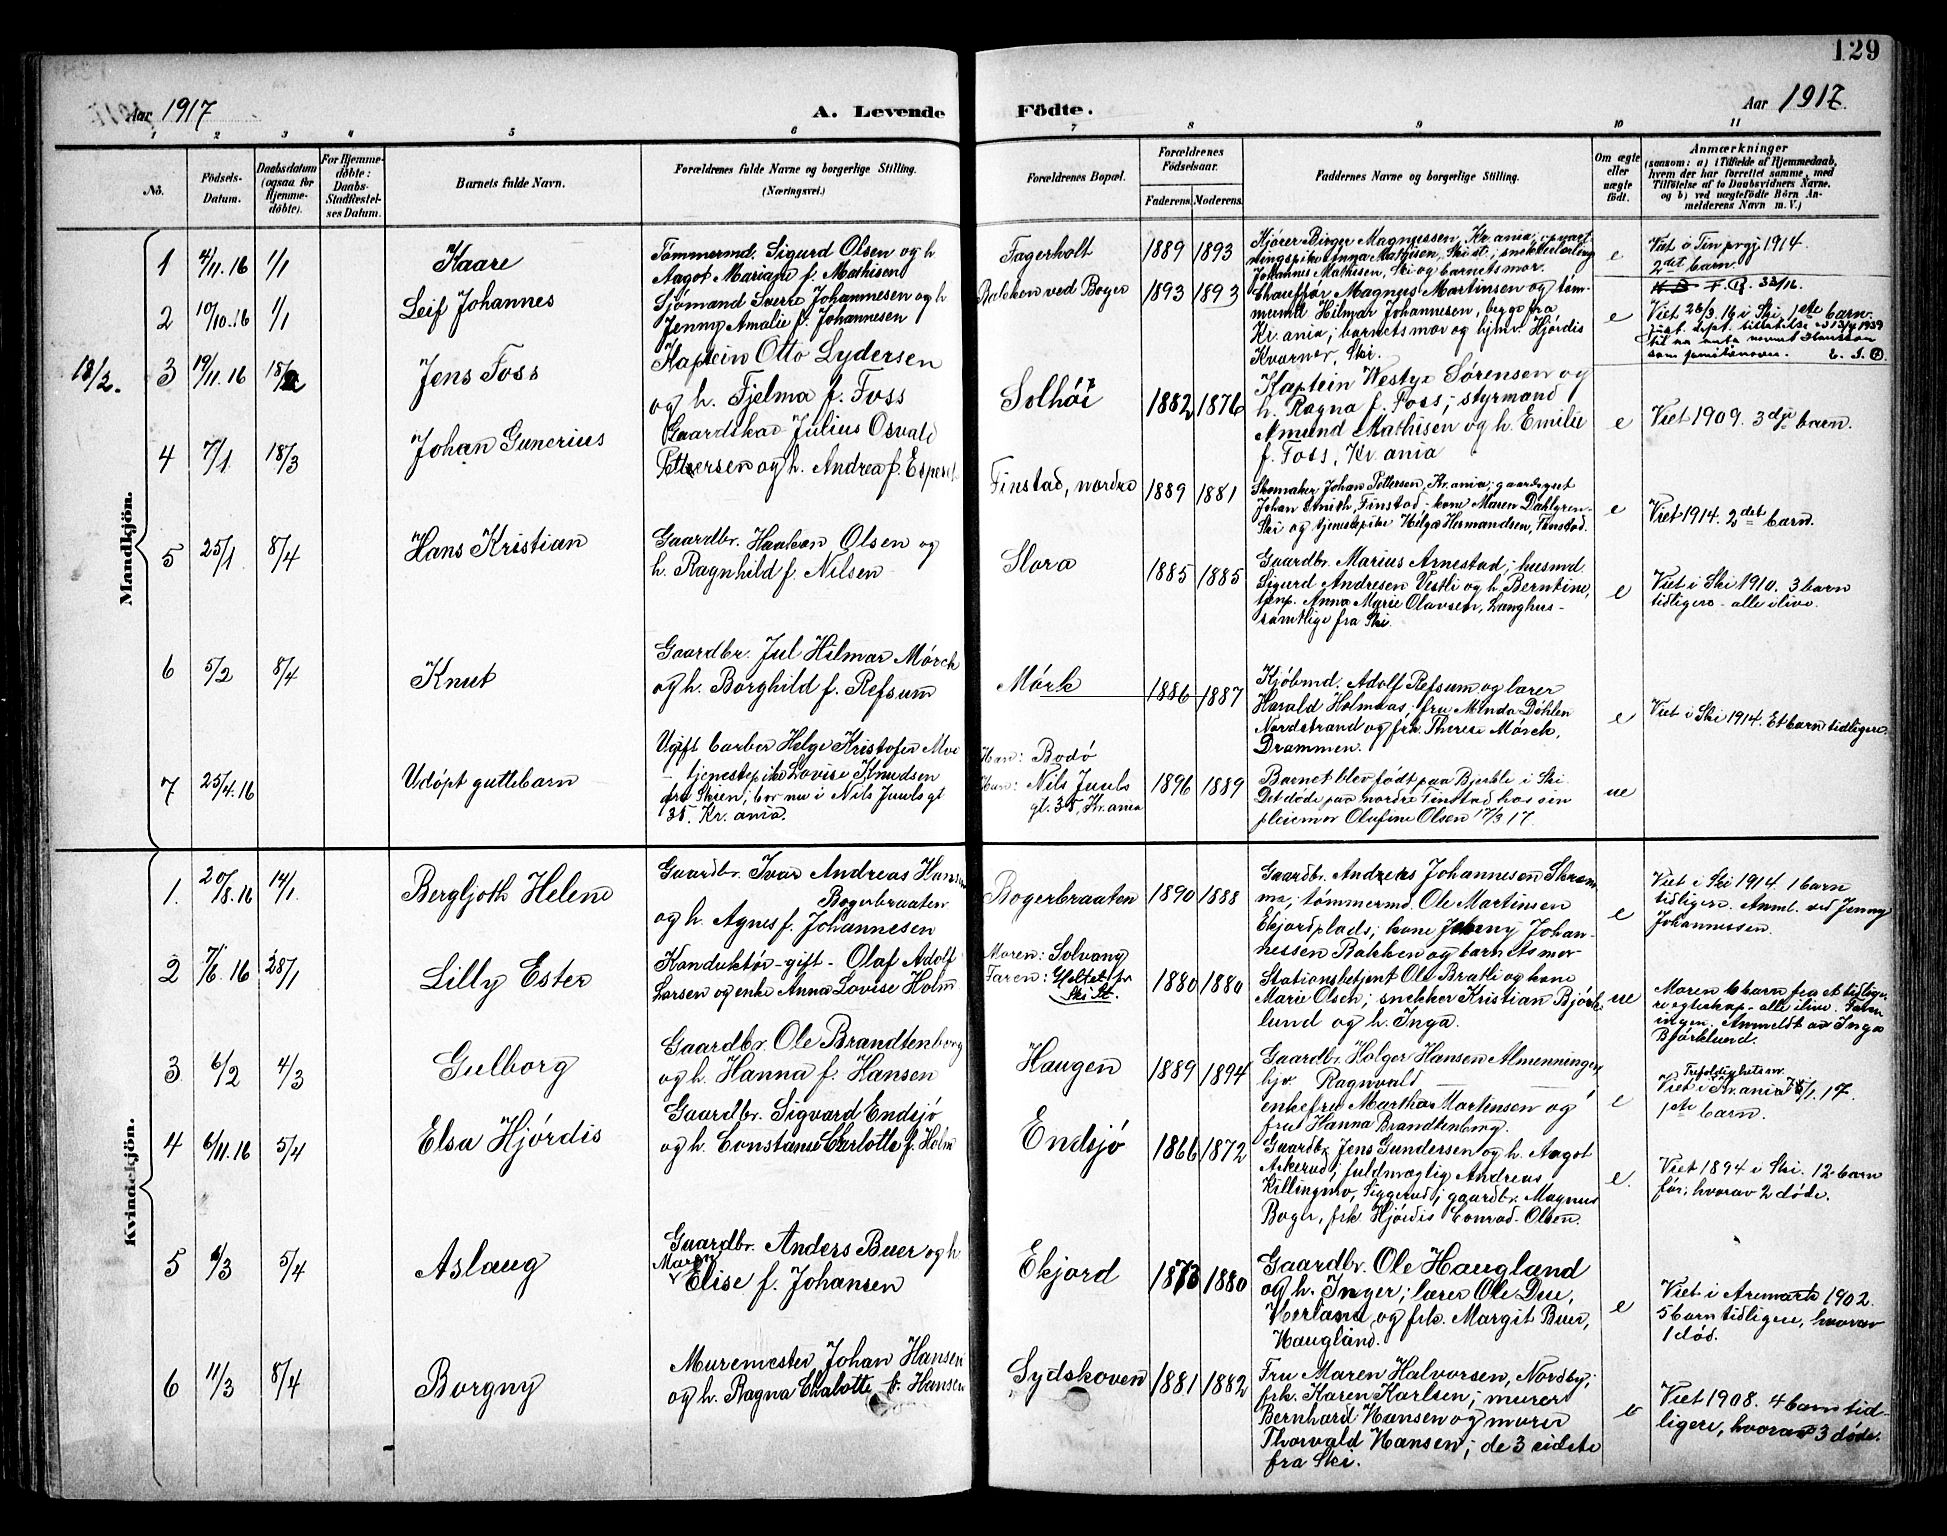 129
Aar 1917
A. Levende Fødte.
Aar 1917.
1 2 3 4 5 6 7 8 9 10 11
No.
Fødsels-Datum.
Daabsdatum (ogsaa for Hjemme-døbte).
For Hjemme-døbte: Daabs-Stadfestel-ses Datum.
Barnets fulde Navn.
Forældrenes fulde Navne og borgerlige Stilling. (Næringsvei.)
Forældrenes Bopæl.
Forældrenes Fødselsaar.
Faderens. Moderens.
Faddernes Navne og borgerlige Stilling.
Om ægte eller uægte født.
Anmærkninger
(saasom: a) i Tilfælde af Hjemmedaab,
hvem der har forrettet samme, med
Tilføielse af to Daabsvidners Navne.
og b) ved uægtefødte Børn An-
melderens Navn m. V.)
Mandkjön.
1 4/11.16 1/1 Kaare
Tømmermd. Sigurd Olsen og h
Aagot Mariane f. Mathisen
Fagerholt 1889 1893
Kjører Birger Magnussen, Kr.ania; opvart
ningspike Anna Mathisen, Ski st.; snekkerlærling
Johannes Mathisen, Ski og barnets mor.
e
Viet 1914.
2det barn.
2 10/10.16 1/1 Leif Johannes
Sjømand Sverre Johannesen og h
Jenny Amalie f. Johannesen
Bakken ved Boger 1893 1893
Chauffør Magnus Martinsen og tøm-
mermd Hilmar Johannesen, begge fra
Kr.ania; barnets mor og hjmv. Hjørdis
Kværner, Ski.
e
Viet 26/3.16 i Ski, 1ste barn.
som familienavn.
18/2. 3 19/11.16 18/2 Jens Foss
Kaptein Otto Lydersen
og h. Fjelma f. Foss
Solhöi 1882 1876
Kaptein Westye Sørensen og
h. Ragna f. Foss; styrmand
Amund Mathisen og h. Emilie
f. Foss, Kr.ania
e
Viet 1909. 3dje barn.
4 7/1 18/3 Johan Gunerius
Gaardskar Julius Osvald
Pettersen og h. Andrea f. Espeset
Finstad, nordre 1889 1881
Skomaker Johan Pettersen, Kr.ania; gaardsgut
Johan Smith, Finstad; kone Maren Dahlgren
Ski og tjenestepike Helga Hermandsen, Finstad.
e
Viet 1914. 2det barn.
5 25/1 8/4 Hans Kristian
Gaardbr. Haakon Olsen og
h. Ragnhild f. Nilsen
Slora 1885 1885
Gaardbr. Marius Arnestad; husmd
Sigurd Andresen Vestli og h. Berntine,
tjnp. Anna Marie Olavsen, Langhus -
samtlige fra Ski.
e
Viet i Ski 1910. 3 barn
tidligere - alle ilive.
6 5/2 8/4 Knut
Gaardbr. Jul Hilmar Mørch
og h. Borghild f. Refsum
Mörk 1886 1887
Kjøbmd. Adolf Refsum og lærer
Harald Holmaas; fru Minda Døhlen
Nordstrand og frk. Therese Mørch,
Drammen.
e
Viet i Ski 1914. Et barn tidligere.
7 25/4.16 Udöpt guttebarn
Ugift barber Helge Kristofer Moe
- tjenestepike Lovise Knudsen
fra Skien; bor nu i Nils Juuls gt
35. Kr.ania.
Han: Bodö
Hun: Nils Juuls
gt. 35, Kr.ania
1896 1889
Barnet blev født paa Bjerkli i Ski
Det døde paa nordre Finstad hos sin
pleiemor Olufine Olsen 17/3 17.
ue
Kvindekjön.
1. 20/8.16 14/1. Bergljoth Helene
Gaardbr. Ivar Andreas Hansen
Bogerbraaten
og h. Agnes f. Johannesen
Bogerbraaten 1890 1888
Gaardbr. Andreas Johannesen Skram
mo, tømmermd. Ole Martinsen
Ekjordplads; kone Jenny Johan-
nessen Bakken og barnets mor
e
Viet i Ski 1914. 1 barn
tidligere. Anml. ved Jenny
Johannessen.
2 7/6.16 28/1 Lilly Ester
Konduktör - gift - Olaf Adolf
Larsen og enke Anna Lovise Holm
Moren: Solvang
Faren: Holtet pr
Ski St.
1880 1880
Stationsbetjent Ole Bratli og kone
Marie Olsen; snekker Kristian Bjørk-
lund og h. Inga.
ue
Moren 6 barn fra et tidlige-
re egteskap - alle ilive. Faren
ingen. Anmeldt av Inga
Bjørklund.
3 6/2 4/3 Gulborg
Gaardbr. Ole Brandtenborg
og h. Hanna f. Hansen
Haugen 1889 1894
Gaardbr. Holger Hansen Almenningen
hjv. Ragnvald
enkefru Martha Martinsen og
frue Hanna Brandtenborg.
e
Trefoldighets m.
Viet i Kr.ania /1.17.
1ste barn.
4 6/11.16 5/4 Elsa Hjördis
Gaardbr. Sigvard Endsjö
og h. Constanse Charlotte f. Holm
Endsjö 1866 1872
Gaardbr Jens Gundersen og h. Aagot
Askerud; fuldmægtig Andreas
Killingmo, Siggerud; gaardbr. Magnus
Boger, frk Hjørdis Conrad-Olsen.
e.
Viet 1894 i Ski. 12 barn
før; hvorav 2 døde.
5 /3 5/4 Aslaug
Gaardbr. Anders Buer og h.
Maren
Elise f. Johansen
Ekjord 1873 1880
Gaardbr. Ole Haugland
og h. Inger; lærer Ole Due,
Herland og frk. Margit Buer,
Haugland.
e
Viet i Aremark 1902.
5 barn tidligere, hvorav
1 død.
6 11/3 8/4 Borgny
Muremester Johan Hansen
og h. Ragna Chalotte f. Hansen
Sydskoven 1881 1882
Fru Maren Halvorsen, Nordby;
frk. Karen Karlsen; murer
Bernhard Hansen og murer
Thorvald Hansen; de 3 sidste
fra Ski.
e
Viet 1908. 4 barn tid-
ligere, hvorav 3 døde.